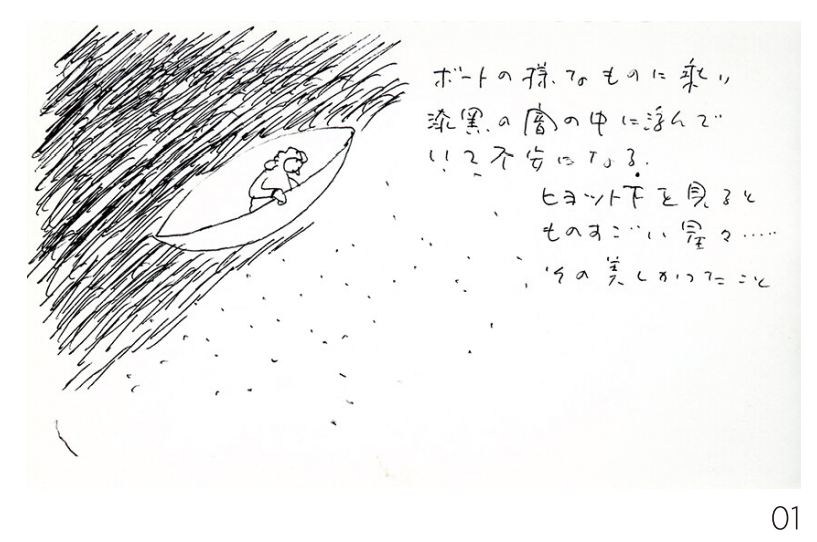 ボートの様なものに乗り
漆黒の闇の中に浮んで
いて不安になる.
ヒョット下を見ると
ものすごい星々‥‥‥
その美しかったこと
01